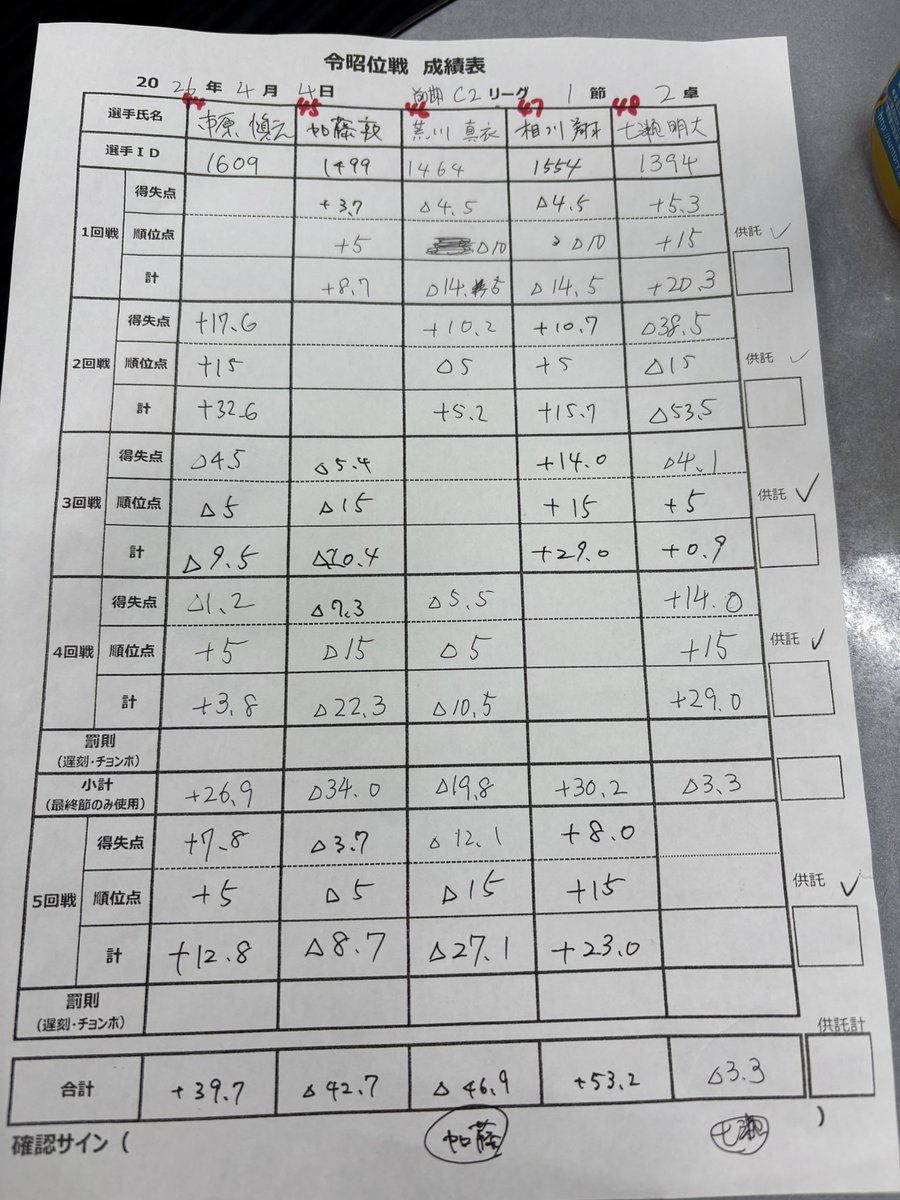 令昭位戦 成績表
20 26 年 4 月 4 日 前期 C2 リーグ 1 節 2 卓
44 45 46 47 48
選手氏名 市原 慎之 加藤 敦 荒川 真衣 相川 翔 七瀬 明大
選手ID 1609 1499 1464 1554 1394
1回戦 得失点 +3.7 △4.5 △4.5 +5.3
順位点 +5 △10 △10 +15 供託 ✓
計 +8.7 △14.5 △14.5 +20.3
2回戦 得失点 +17.6 +10.2 +10.7 △38.5
順位点 +15 △5 +5 △15 供託 ✓
計 +32.6 +5.2 +15.7 △53.5
3回戦 得失点 △4.5 △5.4 +14.0 △4.1
順位点 △5 △15 +15 +5 供託 ✓
計 △9.5 △20.4 +29.0 +0.9
4回戦 得失点 △1.2 △7.3 △5.5 +14.0
順位点 +5 △15 △5 +15 供託 ✓
計 +3.8 △22.3 △10.5 +29.0
罰則
(遅刻・チョンボ)
小計
(最終節のみ使用) +26.9 △34.0 △19.8 +30.2 △3.3
5回戦 得失点 +7.8 △3.7 △12.1 +8.0
順位点 +5 △5 △15 +15 供託 ✓
計 +12.8 △8.7 △27.1 +23.0
罰則
(遅刻・チョンボ)
供託計
合計 +39.7 △42.7 △46.9 +53.2 △3.3
確認サイン ( 加藤 七瀬 )